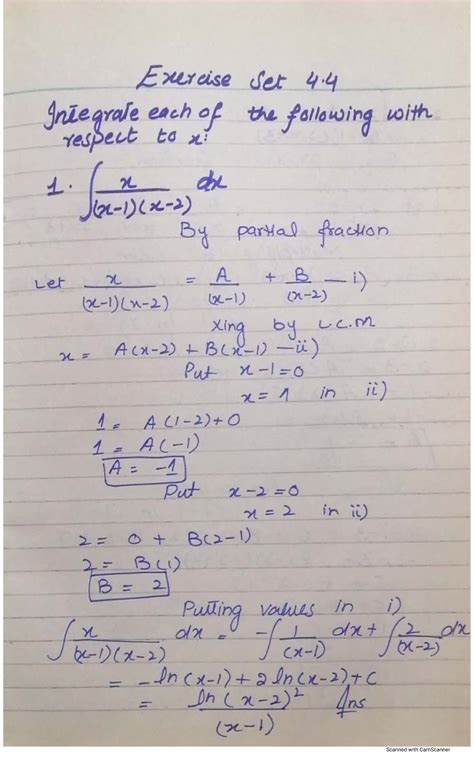 Exercise Set 4.4
Integrate each of the following with
respect to x:
1. ∫ x/((x-1)(x-2)) dx
By partial fraction
Let x/((x-1)(x-2)) = A/(x-1) + B/(x-2) — i)
Xing by L.C.M
x = A(x-2) + B(x-1) — ii)
Put x-1=0
x = 1 in ii)
1 = A(1-2)+0
1 = A(-1)
A = -1
Put x-2=0
x = 2 in ii)
2 = 0 + B(2-1)
2 = B(1)
B = 2
Putting values in i)
∫ x/((x-1)(x-2)) dx = -∫ 1/(x-1) dx + ∫ 2/(x-2) dx
= -ln(x-1) + 2ln(x-2) + c
= ln(x-2)²/(x-1) Ans
Scanned with CamScanner